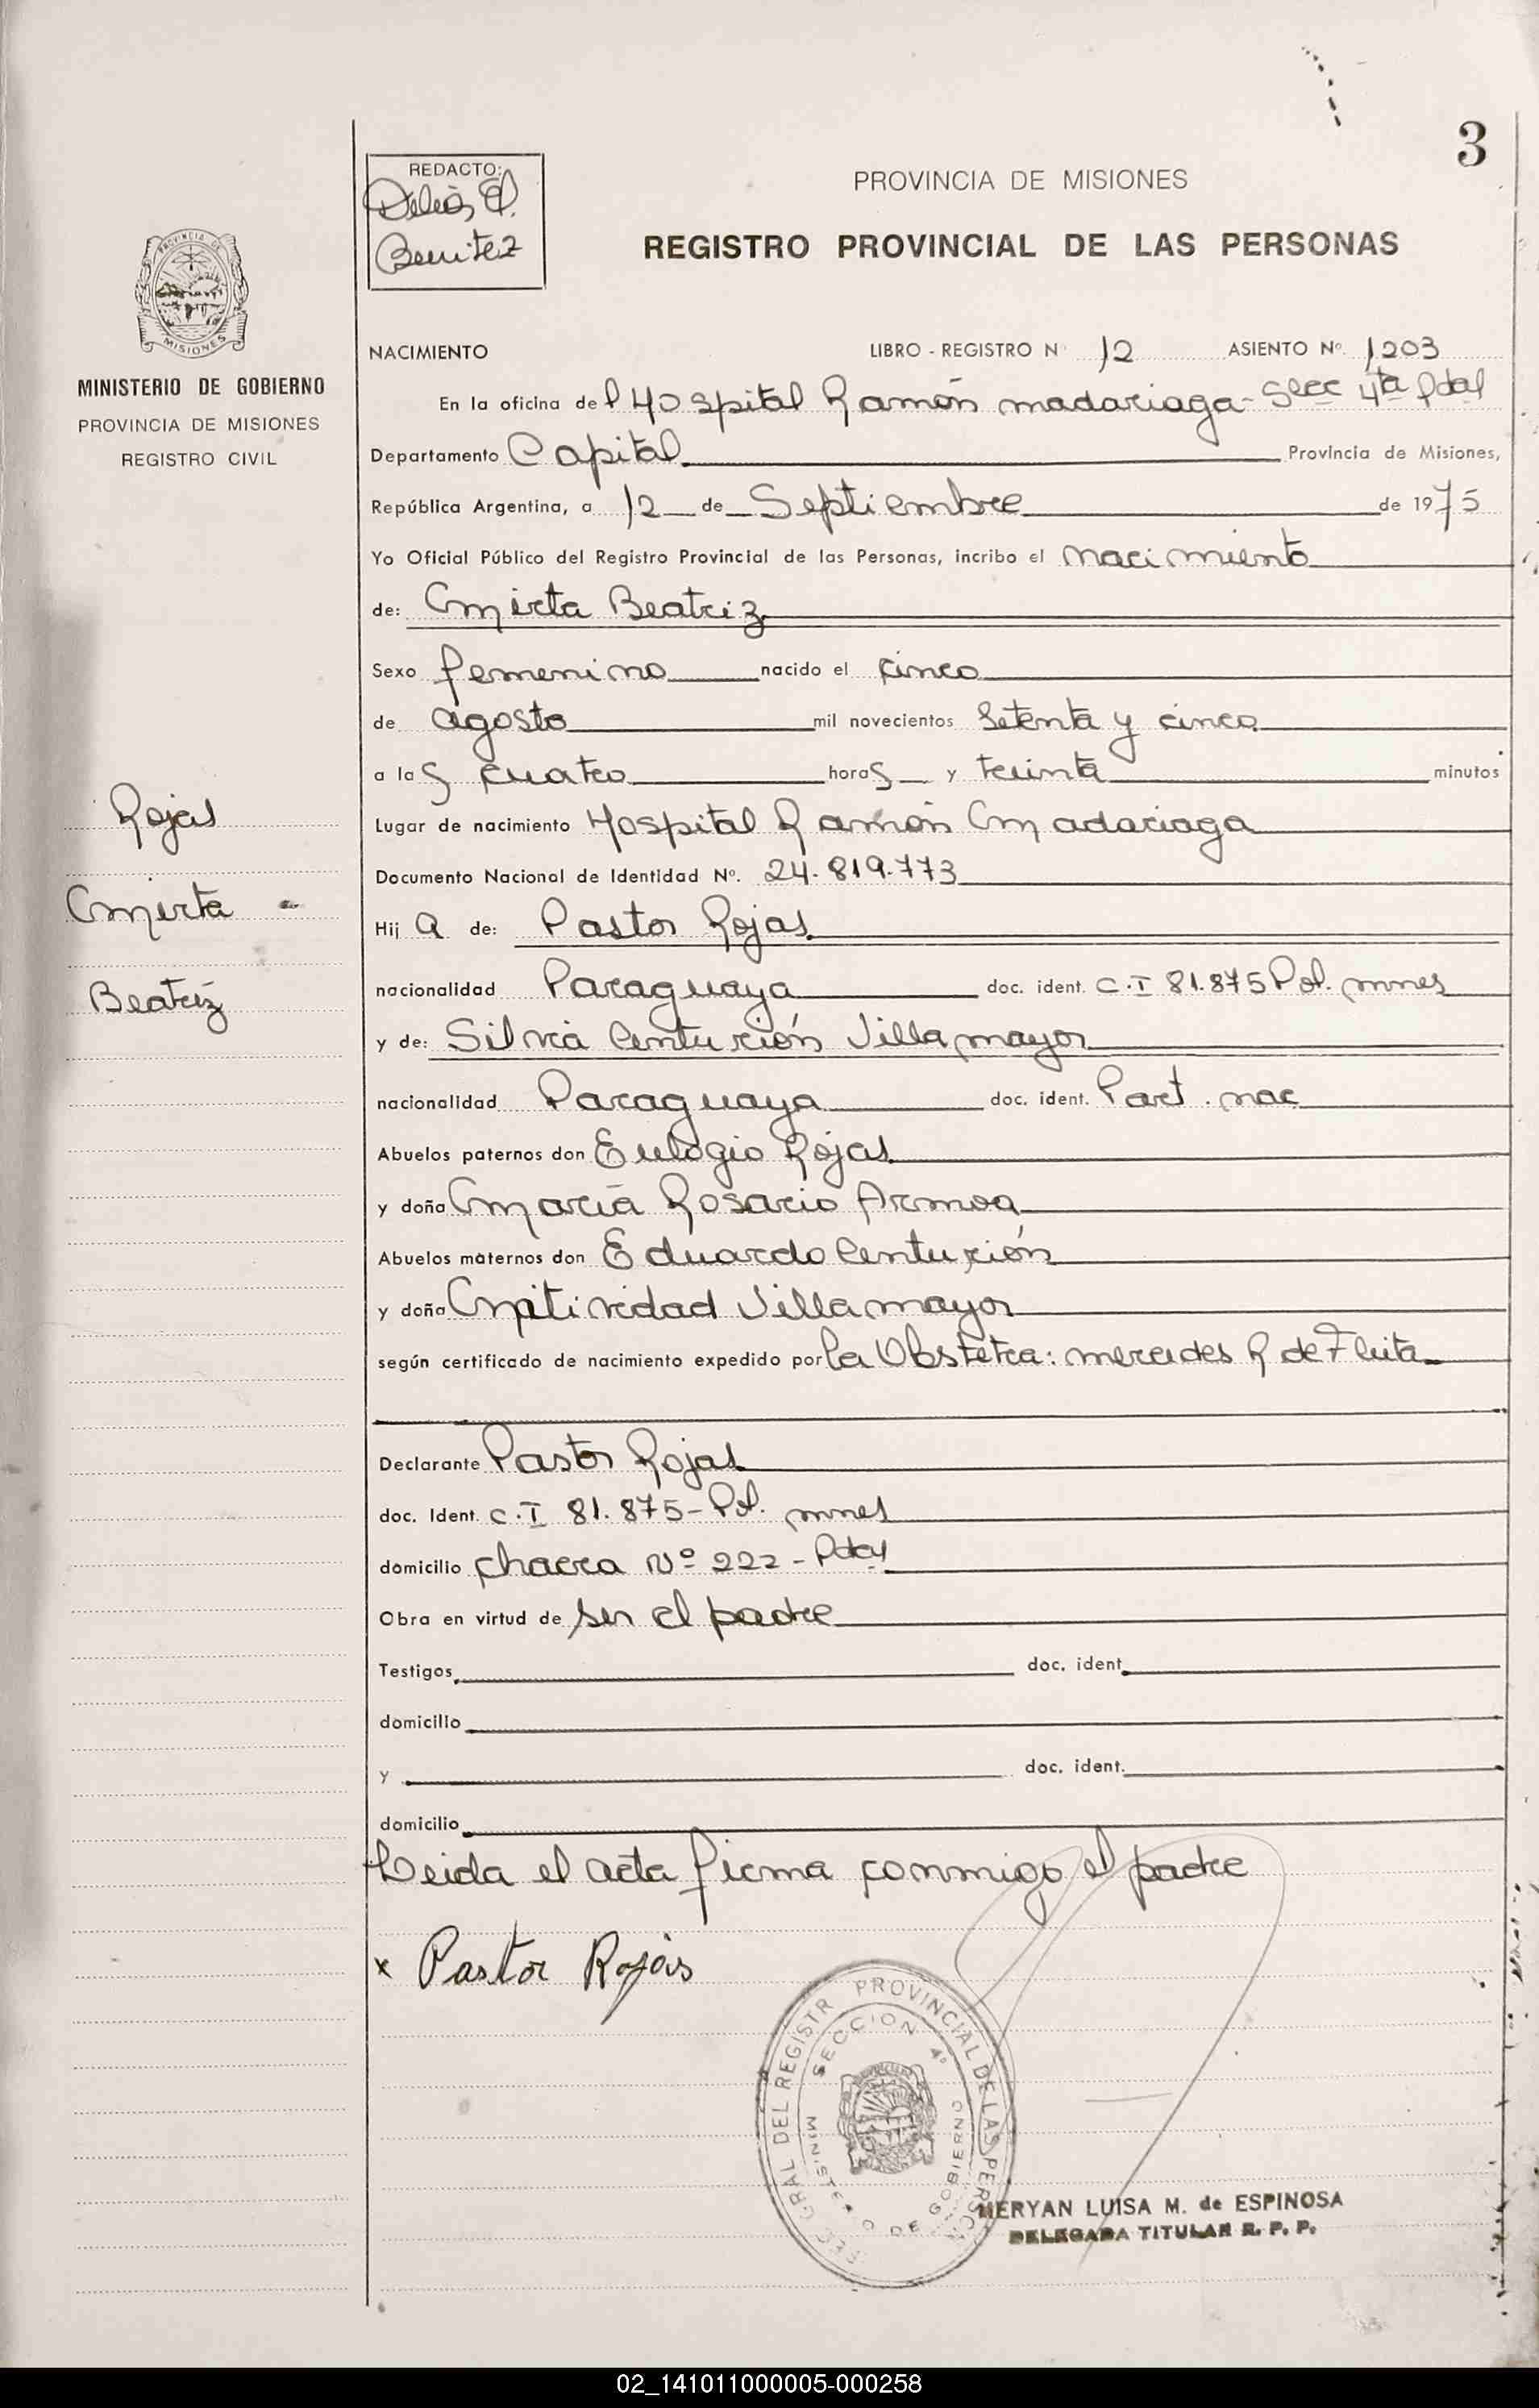 3
REDACTO:
Delia E.
Benitez
PROVINCIA DE MISIONES
REGISTRO PROVINCIAL DE LAS PERSONAS
PROVINCIA DE
MISIONES
MINISTERIO DE GOBIERNO
PROVINCIA DE MISIONES
REGISTRO CIVIL
NACIMIENTO LIBRO - REGISTRO N 12 ASIENTO Nº. 1203
En la oficina del Hospital Ramón Madariaga - Secc 4ta Pdas
Departamento Capital Provincia de Misiones,
República Argentina, a 12 de Septiembre de 1975
Yo Oficial Público del Registro Provincial de las Personas, incribo el nacimiento
de: Mirta Beatriz
Sexo femenino nacido el cinco
de agosto mil novecientos setenta y cinco
a las cuatro horas y treinta minutos
Lugar de nacimiento Hospital Ramón Madariaga
Documento Nacional de Identidad Nº. 24.819.773
Hija de: Pastor Rojas
nacionalidad Paraguaya doc. ident. C.I 81.875 Pol. mnes
y de: Silvia Centurión Villamayor
nacionalidad Paraguaya doc. ident. Part. nac
Abuelos paternos don Eulogio Rojas
y doña María Rosario Armoa
Abuelos maternos don Eduardo Centurión
y doña Natividad Villamayor
según certificado de nacimiento expedido por la Obstetra: mercedes R de Fleita
Declarante Pastor Rojas
doc. Ident. C.I 81.875 - Pol. mnes
domicilio chacra Nº 222 - Pdas
Obra en virtud de ser el padre
Testigos doc. ident.
domicilio
y doc. ident.
domicilio
Leida el acta firma conmigo el padre
x Pastor Rojas
Rojas
Mirta
Beatriz
GRAL DEL REGISTR PROVINCIAL DE LAS PERSON
SECCION 4º
MINISTERIO DE GOBIERNO
MERYAN LUISA M. de ESPINOSA
DELEGADA TITULAR R. P. P.
02_141011000005-000258